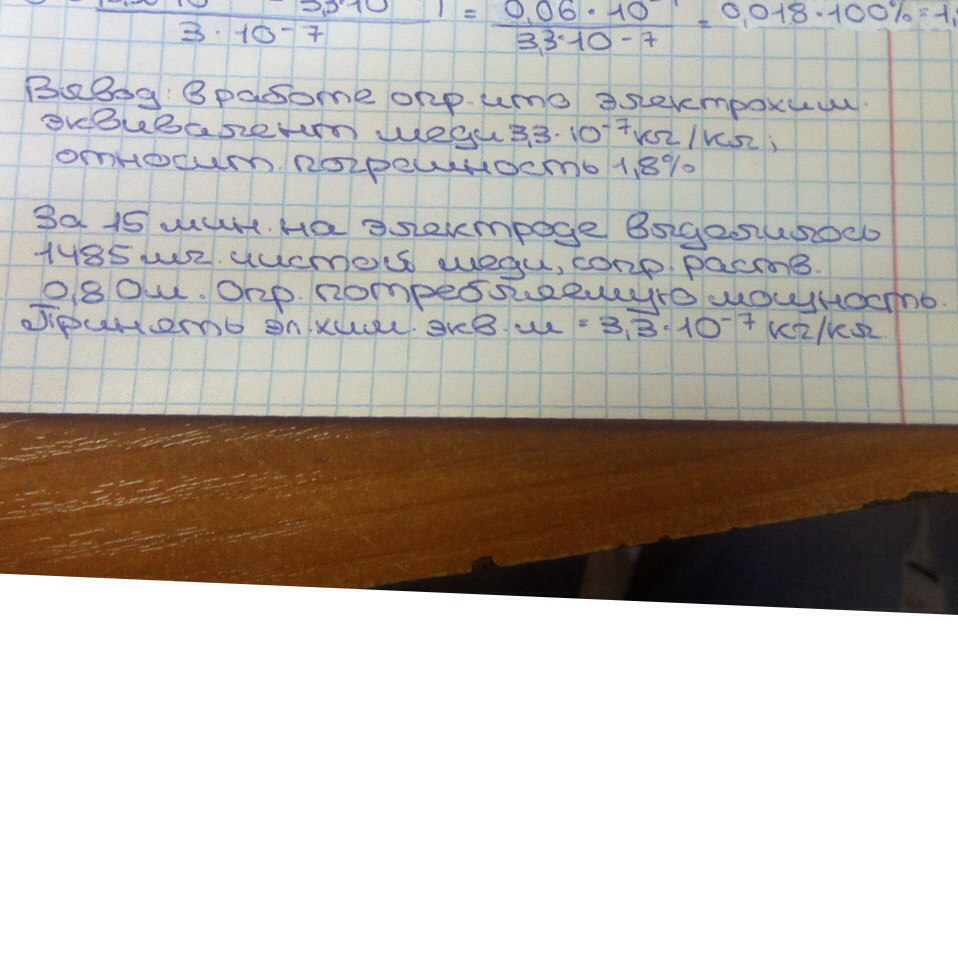 3,3·10
3·10-7
= 0,06·10 / 3,3·10-7 = 0,018·100% = 1,
Вывод: в работе опр. что электрохим.
эквивалент меди 3,3·10⁻⁷ кг/Кл;
относит. погрешность 1,8%
За 15 мин. на электроде выделилось
1485 мг. чистой меди, сопр. раств.
0,8 Ом. Опр. потребляемую мощность.
Принять эл. хим. экв. м = 3,3·10⁻⁷ кг/Кл